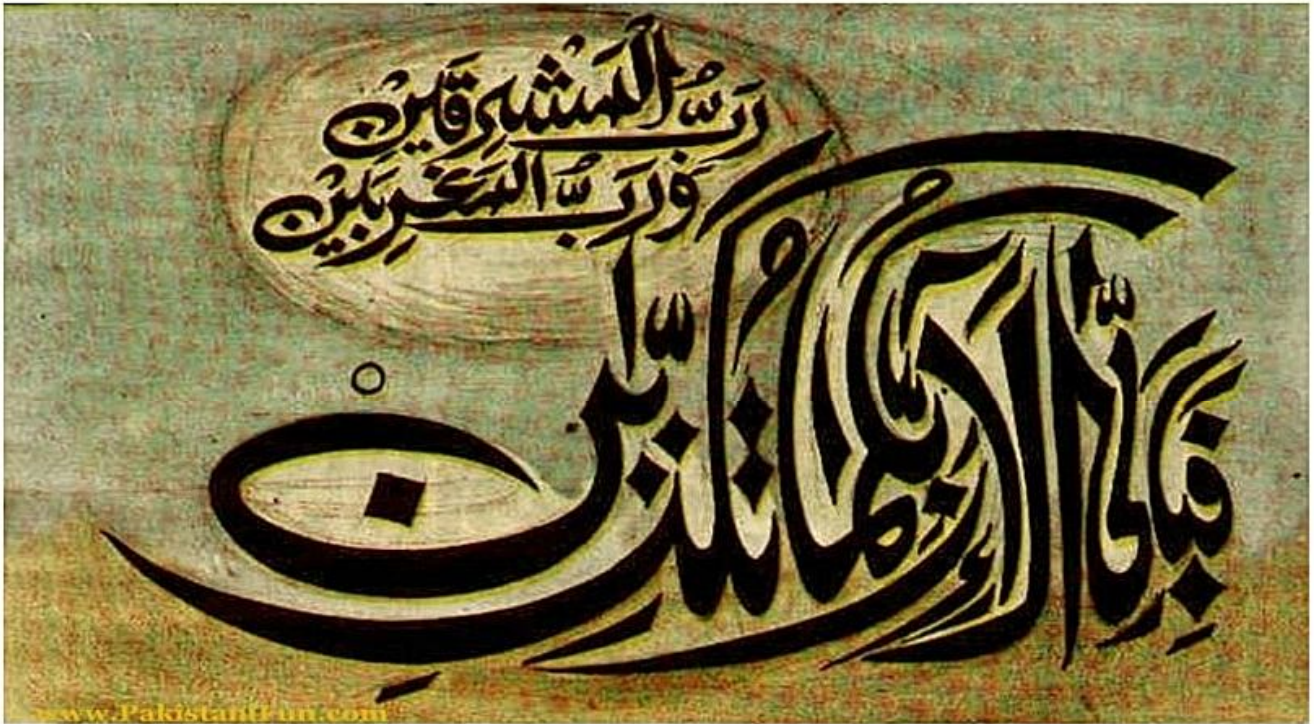 رَبُّ الْمَشْرِقَيْنِ
وَرَبُّ الْمَغْرِبَيْنِ
فَبِأَيِّ آلَاءِ رَبِّكُمَا تُكَذِّبَانِ
www.PakistaniFun.com